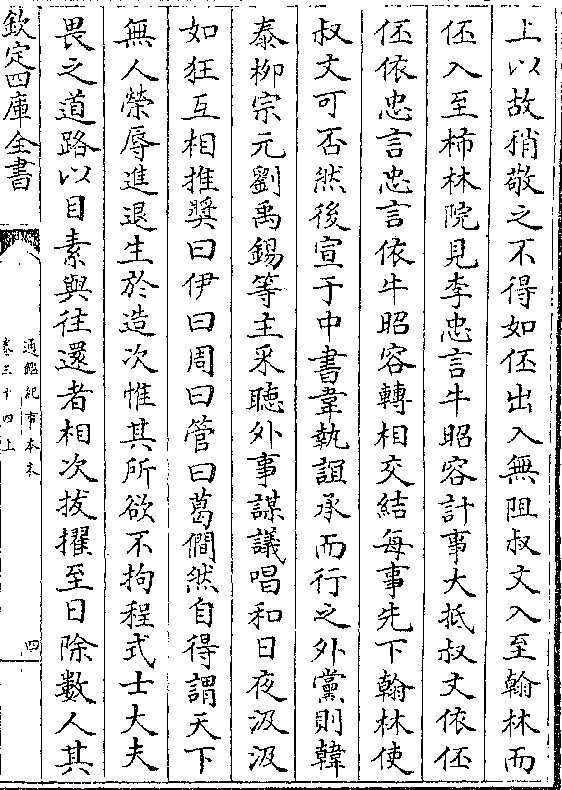 上以故稍敬之不得如伾出入無阻叔文入至翰林而
伾入至柿林院見李忠言牛昭容計事大抵叔文依伾
伾依忠言忠言依牛昭容轉相交結每事先下翰林使
叔文可否然後宣于中書韋執誼承而行之外黨則韓
泰柳宗元劉禹錫等主采聽外事謀議唱和日夜汲汲
如狂互相推奬曰伊曰周曰管曰葛僩然自得謂天下
無人榮辱進退生於造次惟其所欲不拘程式士大夫
畏之道路以目素與往還者相次拔擢至日除數人其
欽定四庫全書
通鑑紀事本末
卷三十四上
四